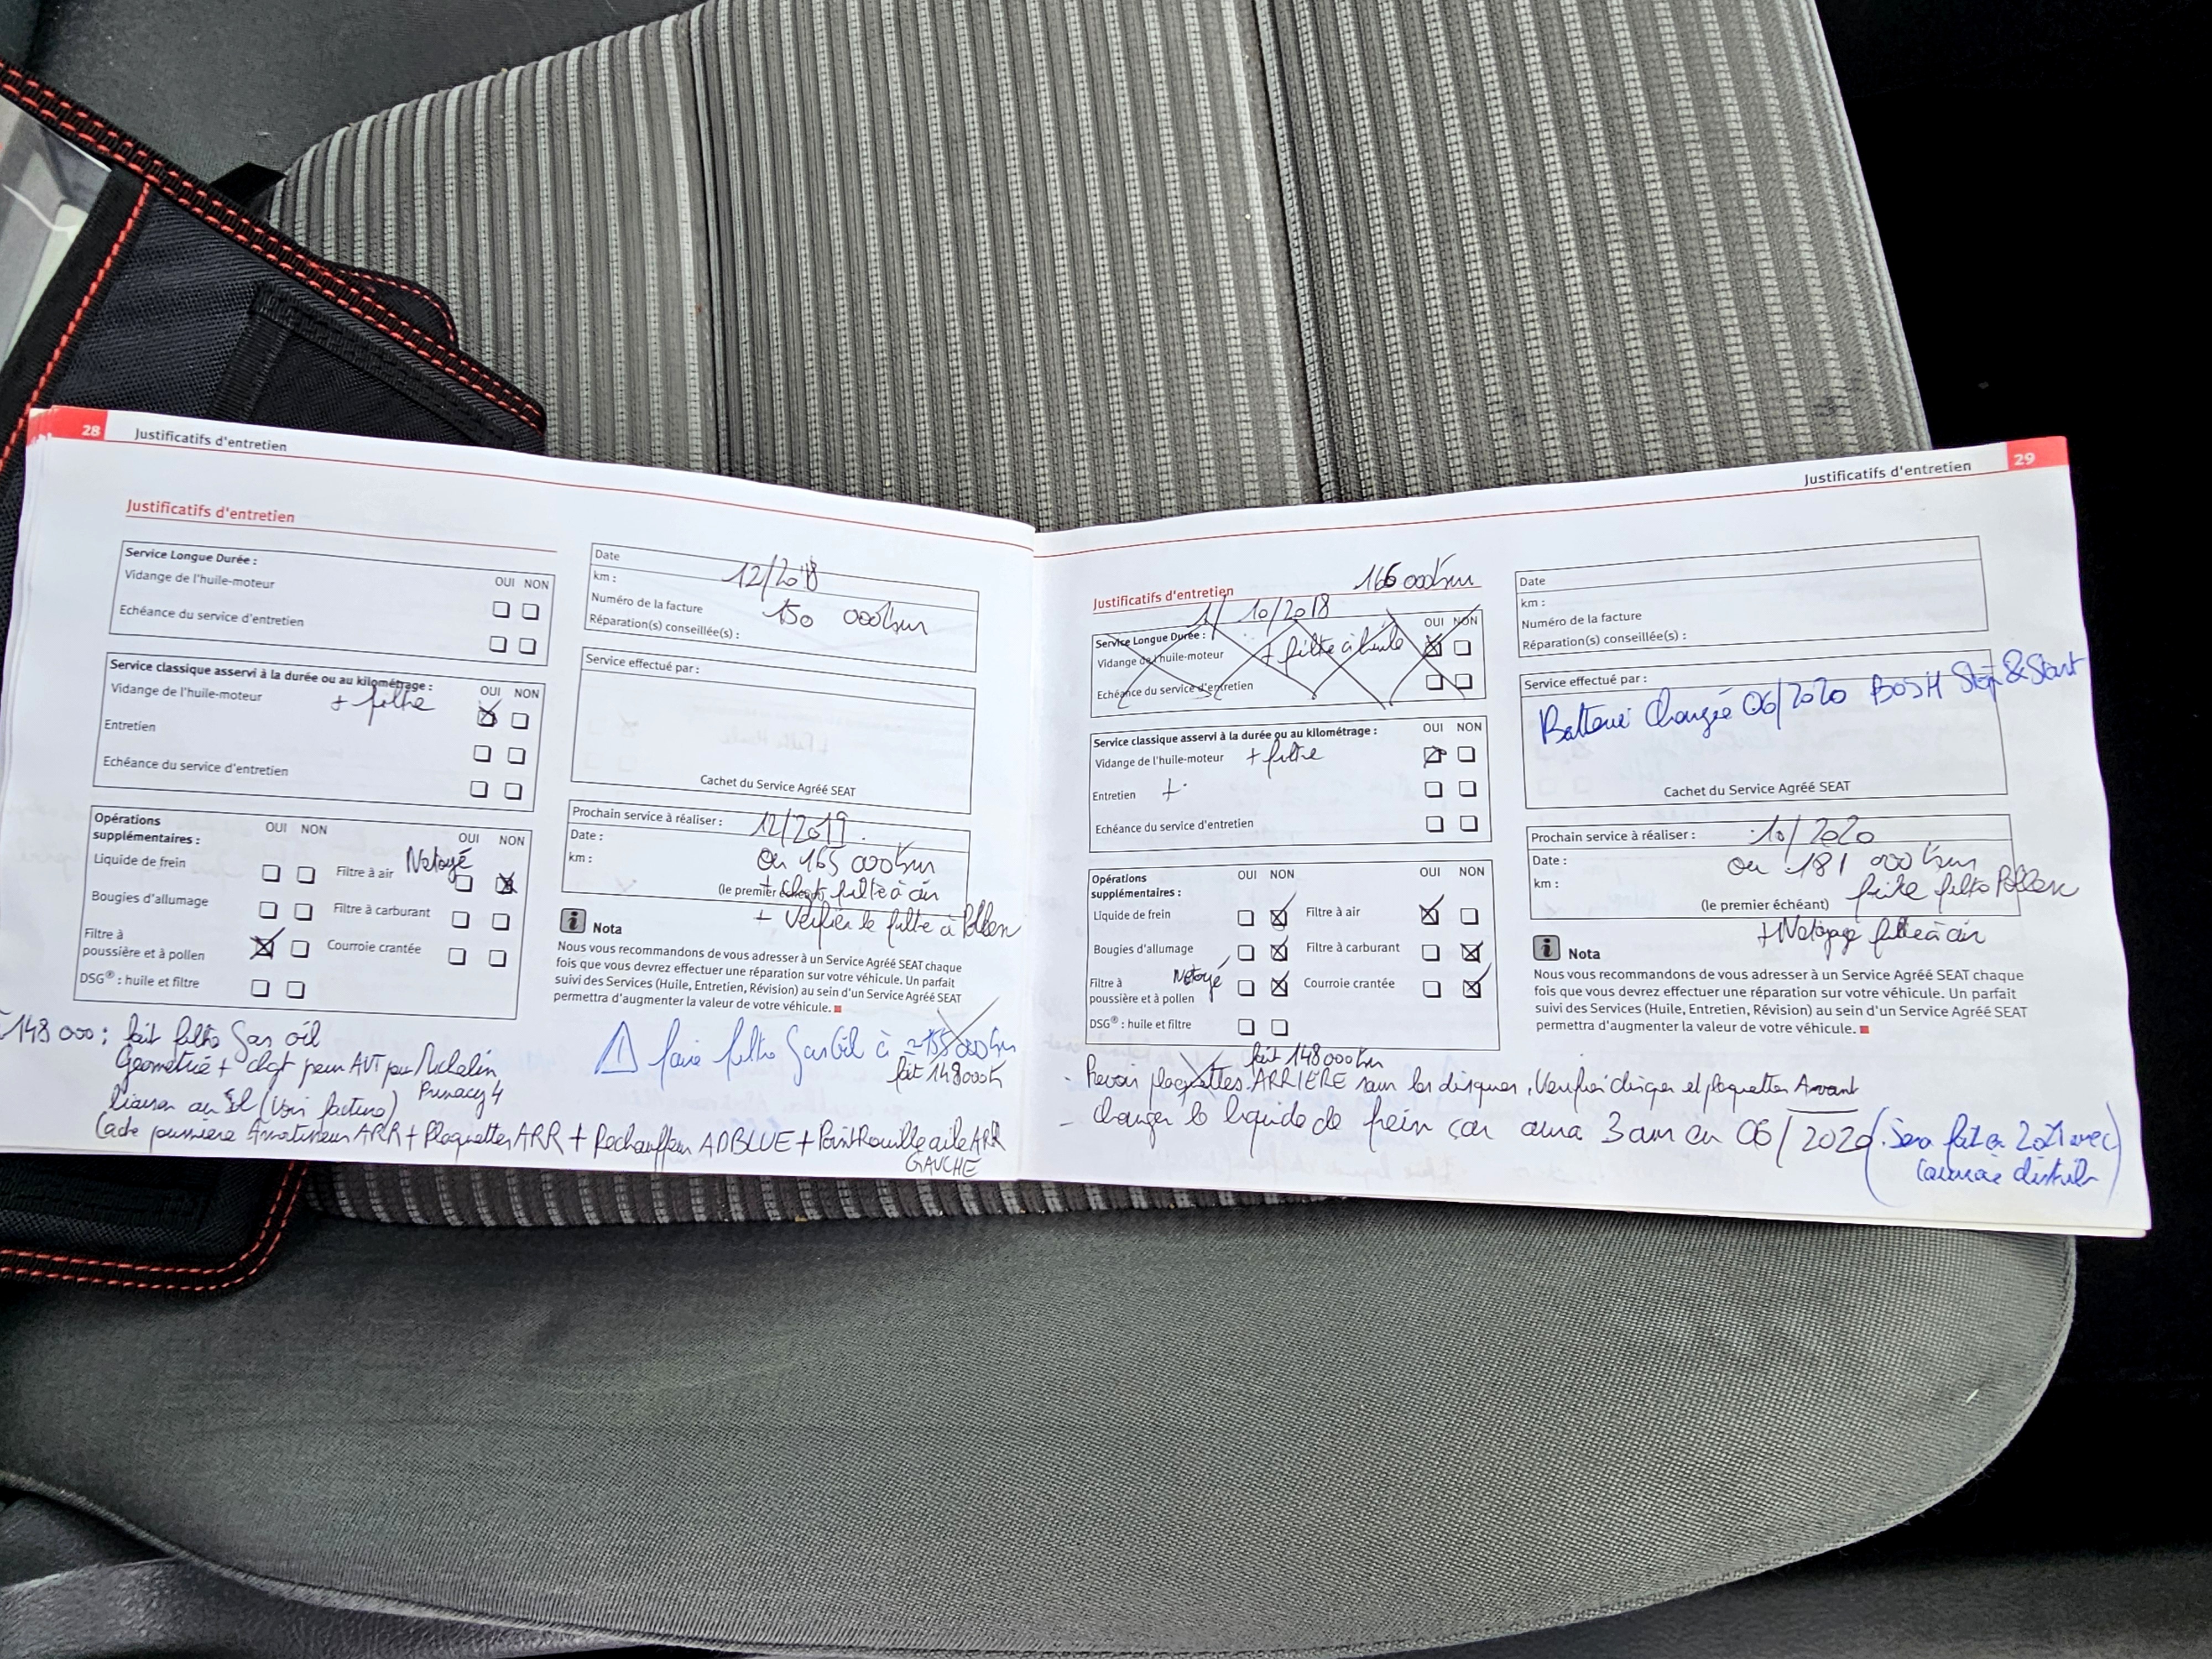 28 Justificatifs d'entretien
Justificatifs d'entretien
Service Longue Durée :
OUI NON
Vidange de l'huile-moteur
Echéance du service d'entretien
Service classique asservi à la durée ou au kilométrage :
OUI NON
Vidange de l'huile-moteur + filtre
Entretien
Echéance du service d'entretien
Opérations supplémentaires :
OUI NON OUI NON
Liquide de frein Filtre à air Netoyé
Bougies d'allumage Filtre à carburant
Filtre à poussière et à pollen Courroie crantée
DSG® : huile et filtre
148 000 : fait filtre Gas oil
Géométrie + chgt pneu AVT par Michelin
Primacy 4
liaison au sol (Voir facture)
Cache poussière Amortisseur ARR + Plaquettes ARR + Rechauffeur ADBLUE + Point Rouille aile ARR
GAUCHE
Date 12/2018
km : 150 000km
Numéro de la facture
Réparation(s) conseillée(s) :
Service effectué par :
Cachet du Service Agréé SEAT
Prochain service à réaliser : 12/2019
Date :
km : ou 165 000km
(le premier + chgt filtre à air
+ Vérifier le filtre à Pollen
i Nota
Nous vous recommandons de vous adresser à un Service Agréé SEAT chaque
fois que vous devrez effectuer une réparation sur votre véhicule. Un parfait
suivi des Services (Huile, Entretien, Révision) au sein d'un Service Agréé SEAT
permettra d'augmenter la valeur de votre véhicule.
! faire filtre GasOil à ≃155 000km
fait 148000k
Justificatifs d'entretien 29
166 000km
Justificatifs d'entretien
10/2018
Service Longue Durée :
OUI NON
Vidange de l'huile-moteur + filtre à huile
Echéance du service d'entretien
Service classique asservi à la durée ou au kilométrage :
OUI NON
Vidange de l'huile-moteur + filtre
Entretien +
Echéance du service d'entretien
Opérations supplémentaires :
OUI NON OUI NON
Liquide de frein Filtre à air
Bougies d'allumage Filtre à carburant
Filtre à poussière et à pollen Netoyé Courroie crantée
DSG® : huile et filtre
fait 148000km
- Prevoir plaquettes ARRIERE sans les disques, Verifier disques et plaquettes Avant
- changer le liquide de frein car aura 3 ans en 06/2020 (Sera fait en 2021 avec
courroie distrib)
Date
km :
Numéro de la facture
Réparation(s) conseillée(s) :
Service effectué par :
Batterie Changée 06/2020 BOSH Stop & Start
Cachet du Service Agréé SEAT
Prochain service à réaliser : 10/2020
Date :
km : ou 181 000km
(le premier échéant) faire filtre Pollen
+ Netoyage filtre à air
i Nota
Nous vous recommandons de vous adresser à un Service Agréé SEAT chaque
fois que vous devrez effectuer une réparation sur votre véhicule. Un parfait
suivi des Services (Huile, Entretien, Révision) au sein d'un Service Agréé SEAT
permettra d'augmenter la valeur de votre véhicule.